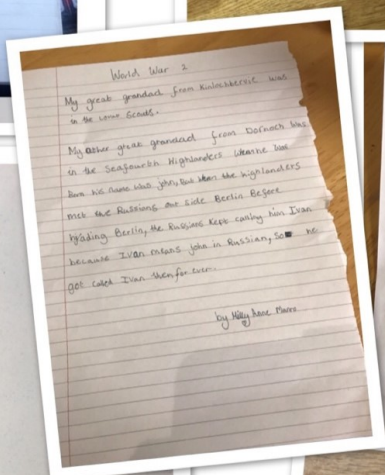 World War 2
My great grandad from Kinlochbervie was
in the Scouts.
My other great grandad from Dornoch was
in the Seafourth Highlanders when he was
Born his name was john, but when the highlanders
met the Russians out side Berlin Before
invading Berlin, the Russians kept calling him Ivan
because Ivan means john in Russian, So he
got called Ivan then for ever.
by Anne